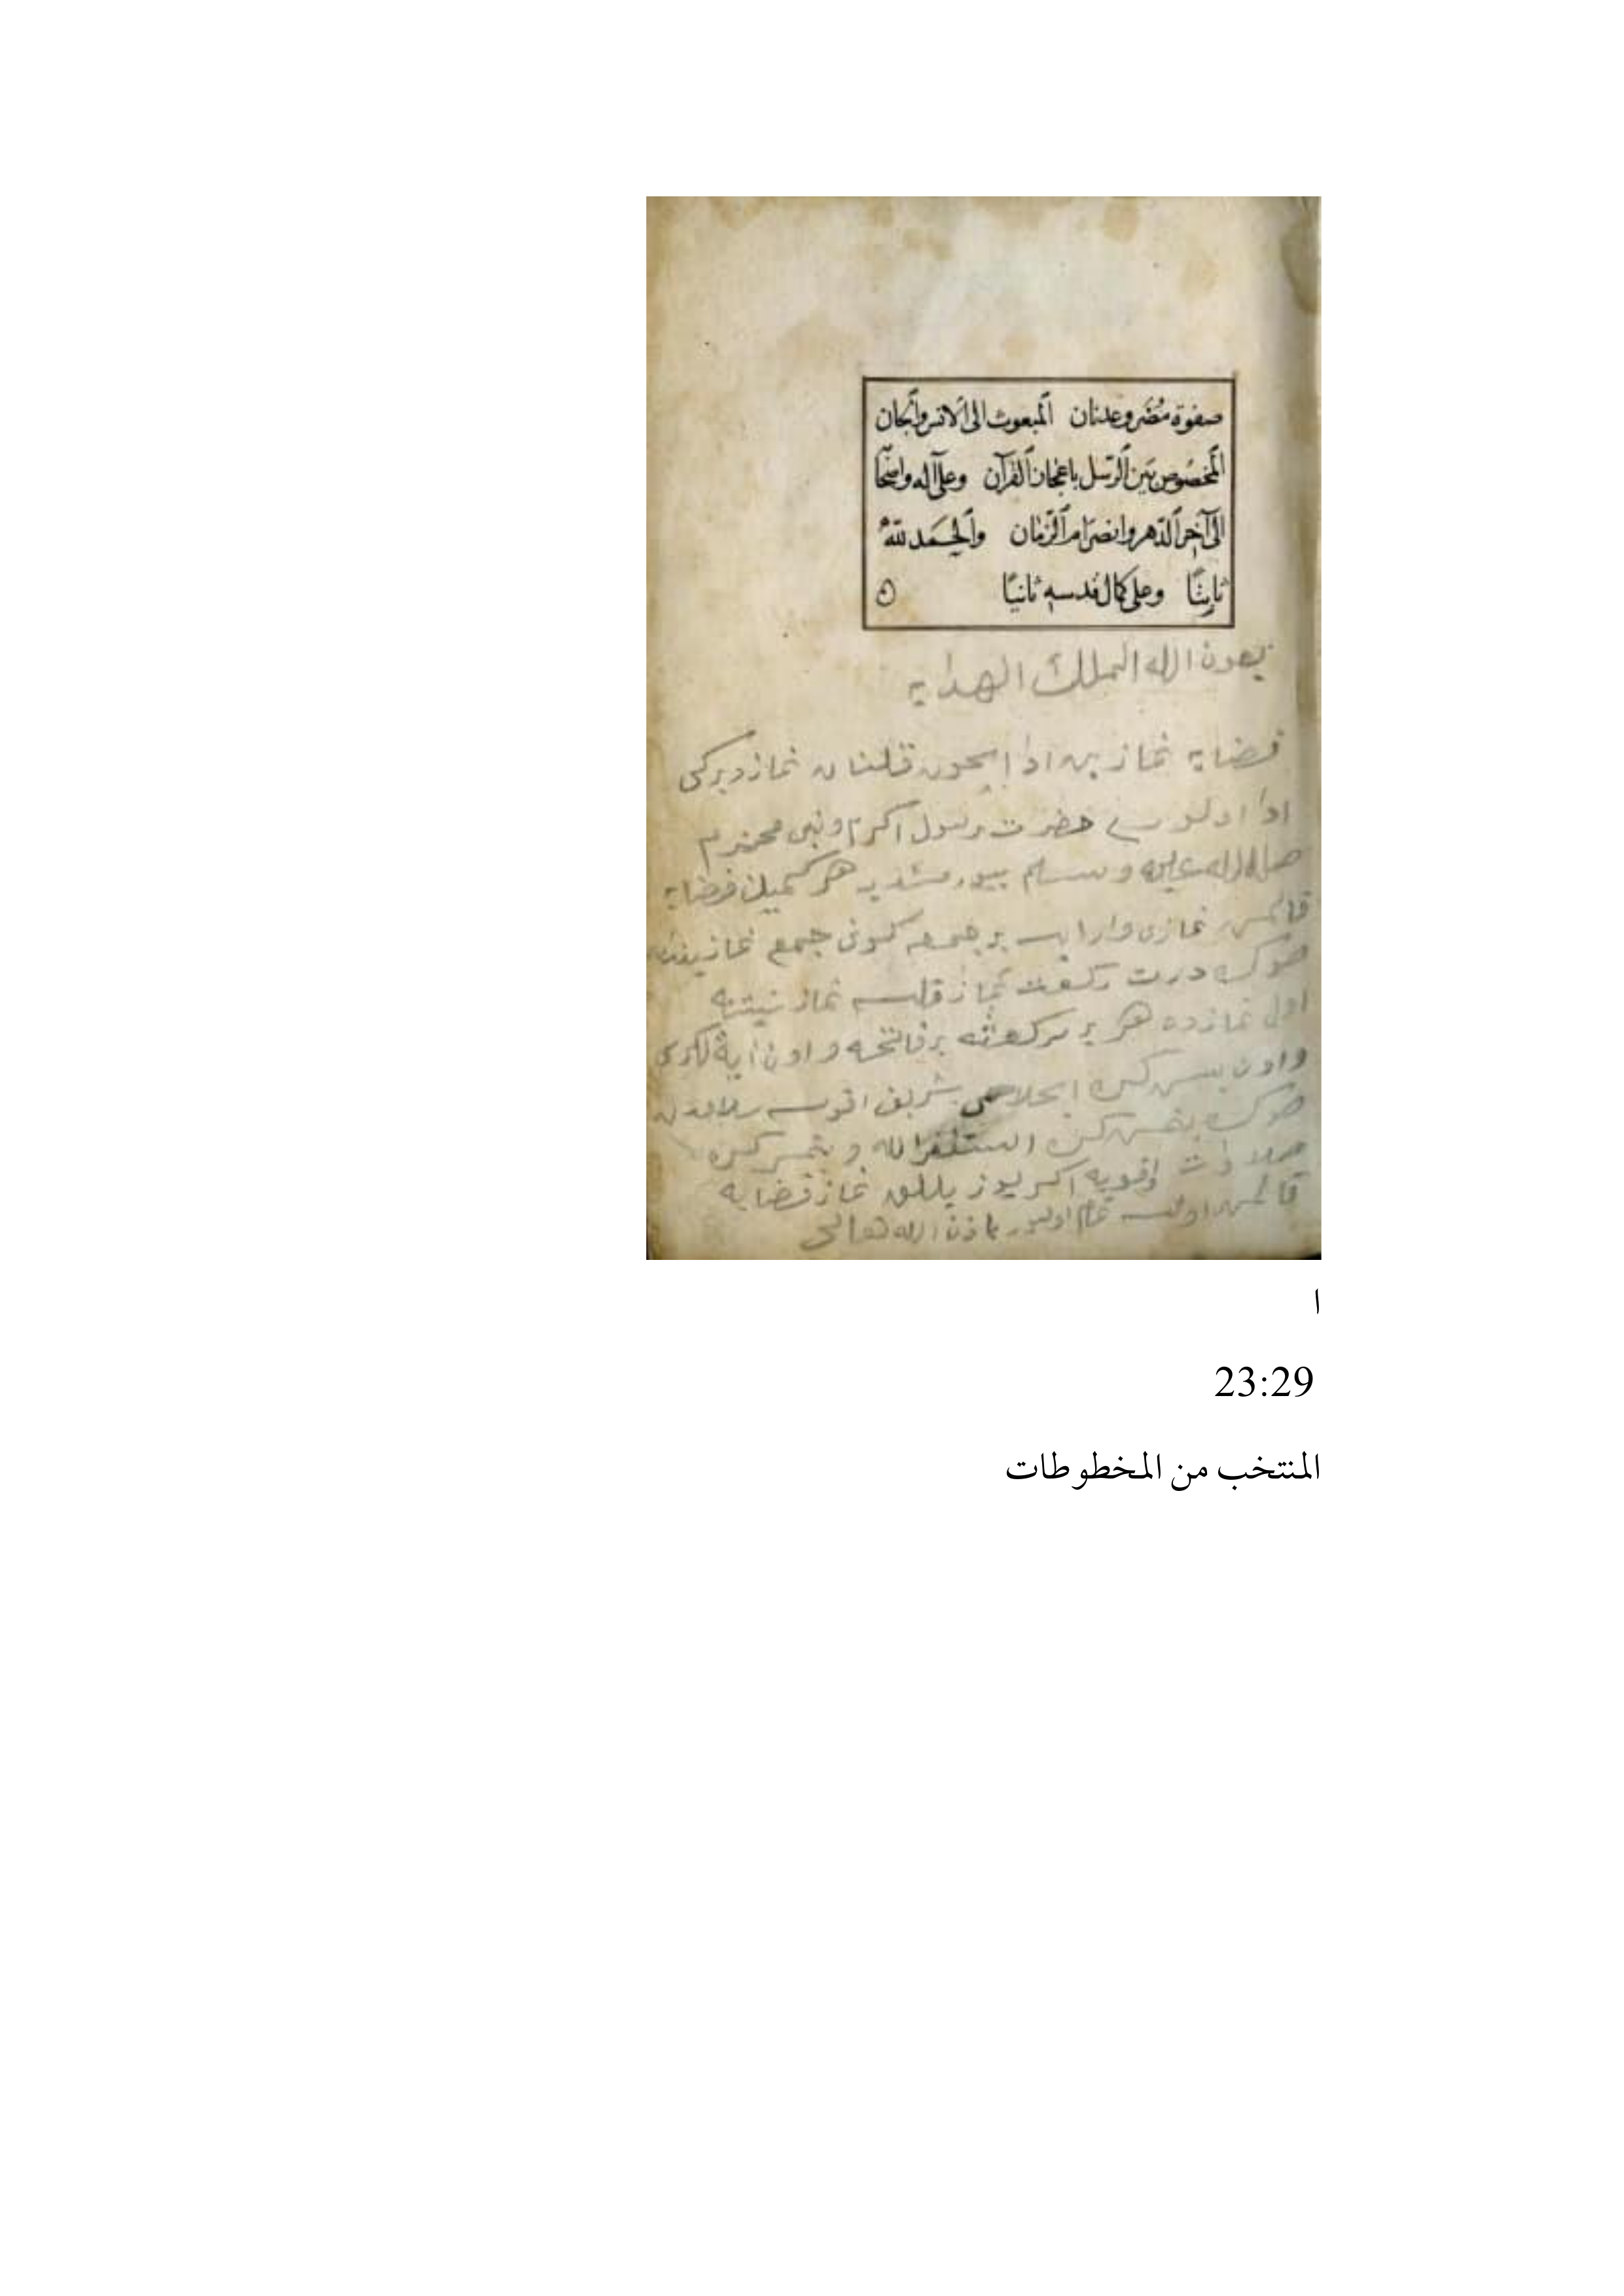 صفوة مُضَر وعدنان اَلمبعوث الى اَلانس واَلجان
اَلمخصُوص بَين اَلرّسل باعجاز اَلقرآن وعلى آله واصحا
الى آخِر اَلدّهر وانصرَام اَلزّمَان واَلحَمد للّه
ثابتًا وعلى كمال قدسهِ ثانيًا
بعون الله الملك الهدايه
قضايه نماز ادا ايچون قلنان نمازدیرکی
ادا اولنور حضرت رسول اكرم ونبى محترم
صلى الله عليه وسلم بيورمشدر هر كمسنك قضايه
قالمش نمازى وار ايسه بر جمعه كونى جمعه نمازيندن
صوكره درت ركعت نماز قلسه نماز نيتنه
اول نمازده هر بر ركعتنه بر فاتحه و اون اية الكرسى
واون بش كره اخلاص شريف اقوسه سلامدن
صوكره يتمش كره استغفر الله و يتمش كره
صلاوات اقويه اكر يوز ييللق نماز قضايه
قالمش اولسه تمام اولور باذن الله تعالى
ا
23:29
المنتخب من المخطوطات